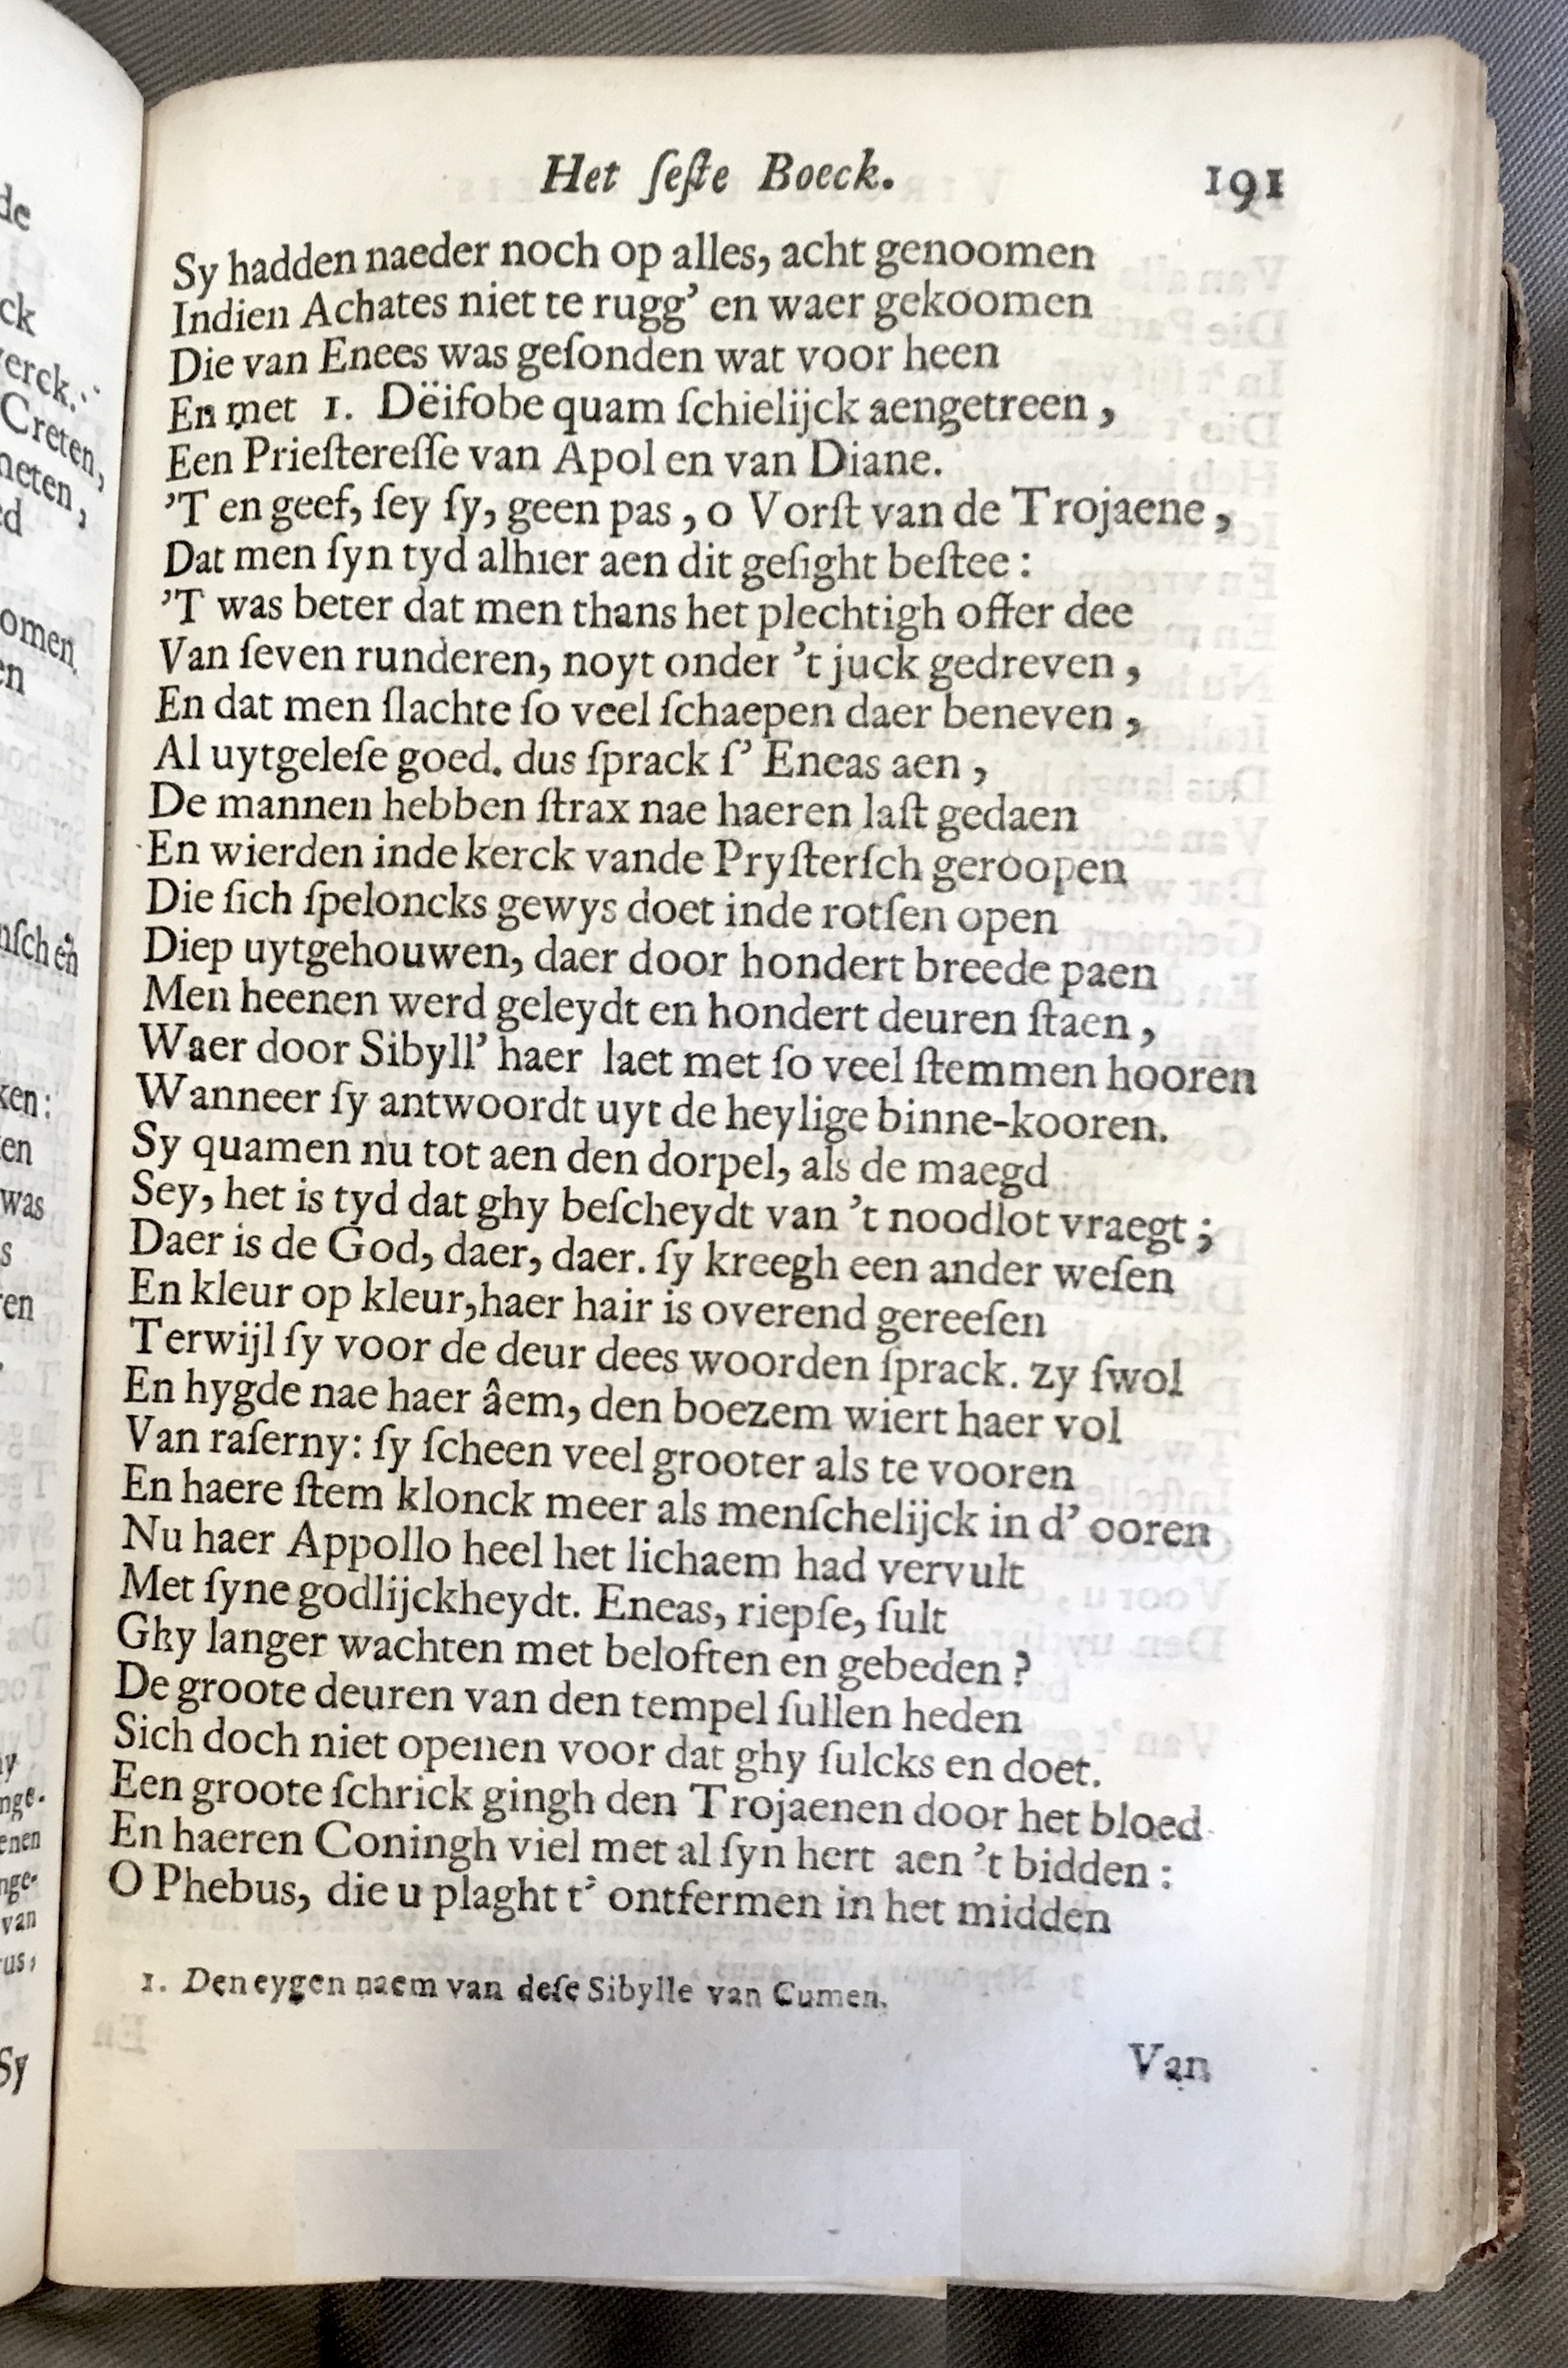 Het ſeſte Boeck. 191
Sy hadden naeder noch op alles, acht genoomen
Indien Achates niet te rugg’ en waer gekoomen
Die van Enees was geſonden wat voor heen
En met 1. Dëifobe quam ſchielijck aengetreen ,
Een Prieſtereſſe van Apol en van Diane.
’T en geef, ſey ſy, geen pas , o Vorſt van de Trojaene ,
Dat men ſyn tyd alhier aen dit geſight beſtee :
’T was beter dat men thans het plechtigh offer dee
Van ſeven runderen, noyt onder ’t juck gedreven ,
En dat men ſlachte ſo veel ſchaepen daer beneven ,
Al uytgeleſe goed. dus ſprack ſ’ Eneas aen ,
De mannen hebben ſtrax nae haeren laſt gedaen
En wierden inde kerck vande Pryſterſch geroopen
Die ſich ſpeloncks gewys doet inde rotſen open
Diep uytgehouwen, daer door hondert breede paen
Men heenen werd geleydt en hondert deuren ſtaen ,
Waer door Sibyll’ haer laet met ſo veel ſtemmen hooren
Wanneer ſy antwoordt uyt de heylige binne-kooren.
Sy quamen nu tot aen den dorpel, als de maegd
Sey, het is tyd dat ghy beſcheydt van ’t noodlot vraegt ;
Daer is de God, daer, daer. ſy kreegh een ander weſen
En kleur op kleur,haer hair is overend gereeſen
Terwijl ſy voor de deur dees woorden ſprack. zy ſwol
En hygde nae haer âem, den boezem wiert haer vol
Van raſerny: ſy ſcheen veel grooter als te vooren
En haere ſtem klonck meer als menſchelijck in d’ ooren
Nu haer Appollo heel het lichaem had vervult
Met ſyne godlijckheydt. Eneas, riepſe, ſult
Ghy langer wachten met beloften en gebeden ?
De groote deuren van den tempel ſullen heden
Sich doch niet openen voor dat ghy ſulcks en doet.
Een groote ſchrick gingh den Trojaenen door het bloed
En haeren Coningh viel met al ſyn hert aen ’t bidden :
O Phebus, die u plaght t’ ontfermen in het midden
1. Den eygen naem van deſe Sibylle van Cumen.
Van